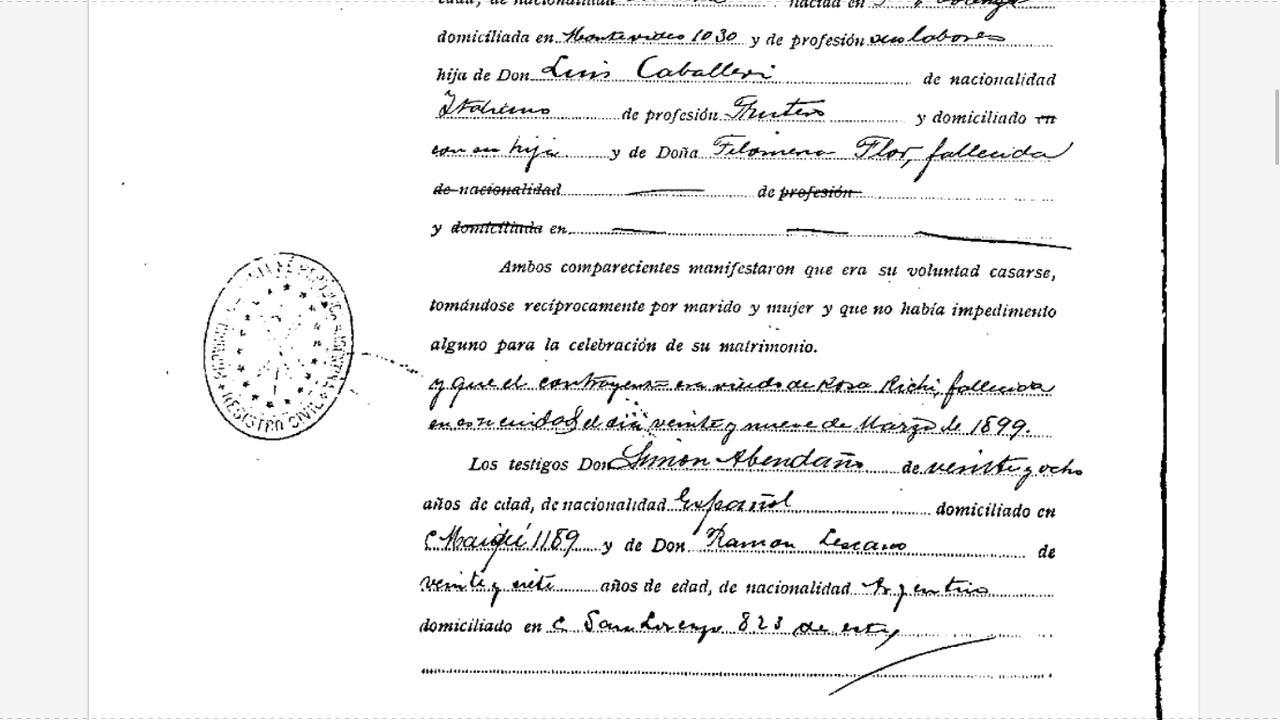 edad, de nacionalidad nacida en S. Lorenzo
domiciliada en Montevideo 1030 y de profesión sus labores
hija de Don Luis Caballeri de nacionalidad
Italiano de profesión Frutero y domiciliado en
con su hija y de Doña Filomena Flor, fallecida
de nacionalidad de profesión
y domiciliada en
Ambos comparecientes manifestaron que era su voluntad casarse,
tomándose recíprocamente por marido y mujer y que no había impedimento
alguno para la celebración de su matrimonio.
y que el contrayente era viudo de Rosa Richi, fallecida
en esta ciudad el día veinte y nueve de Marzo de 1899.
Los testigos Don Simon Abendaño de veinte y ocho
años de edad, de nacionalidad Español domiciliado en
C Maipú 1189 y de Don Ramon Lescano de
veinte y siete años de edad, de nacionalidad Argentino
domiciliado en C San Lorenzo 823 de esta
REGISTRO CIVIL